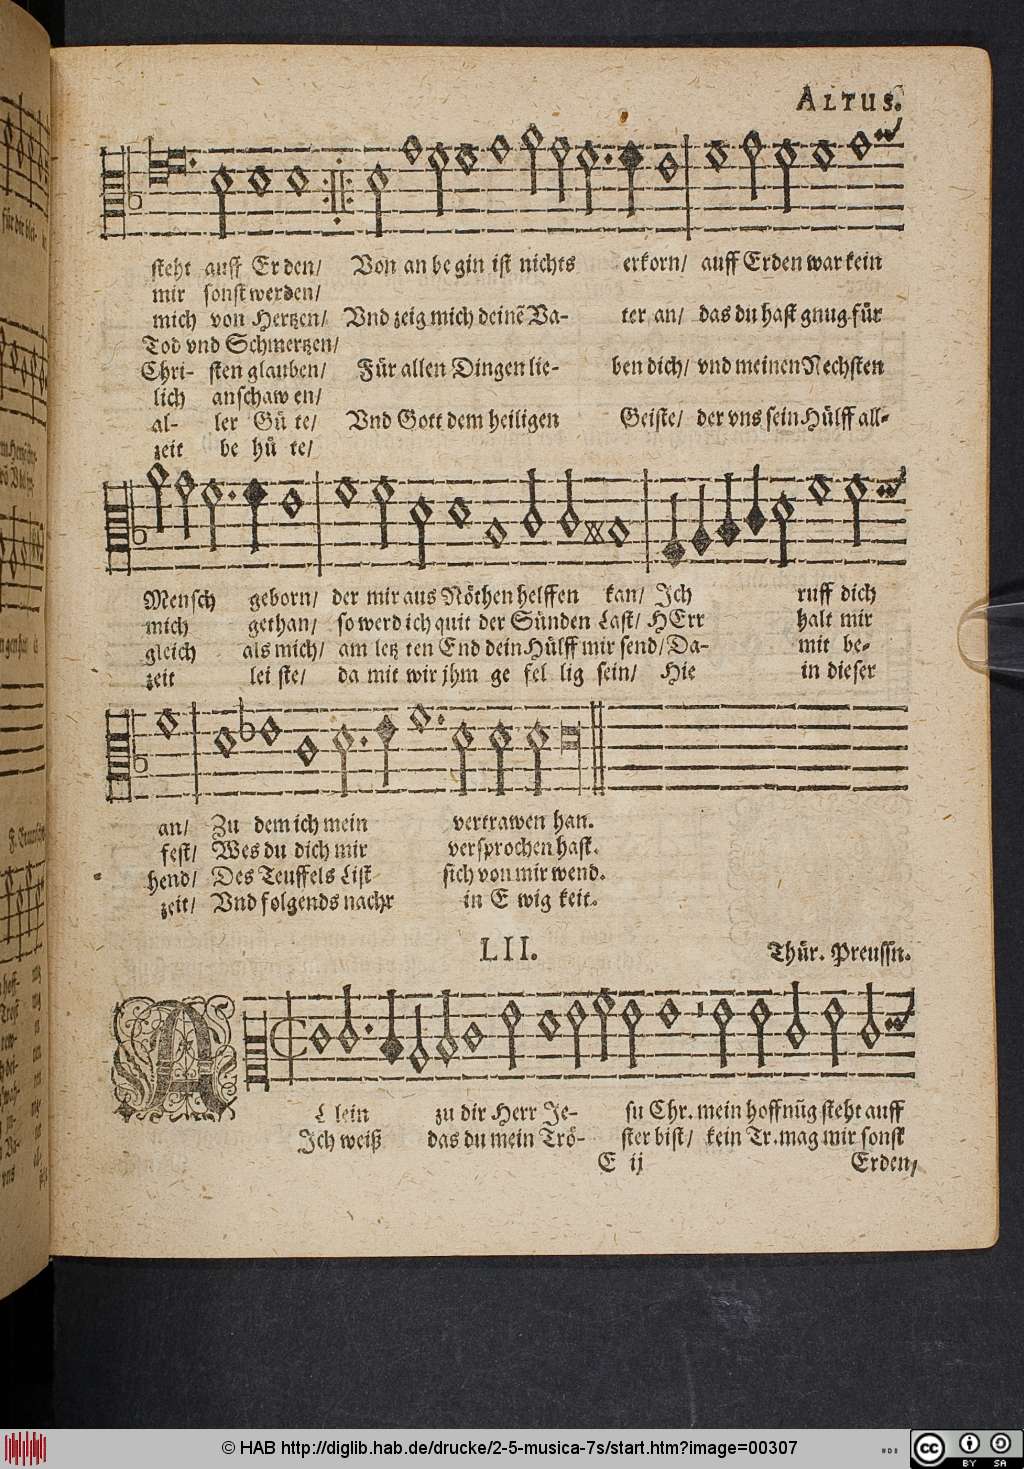 ALTUS.
steht auff Er den/ Von an be gin ist nichts erkorn/ auff Erden war kein
mir sonst werden/
mich von Hertzen/ Vnd zeig mich deinẽ Va- ter an/ das du hast gnug für
Tod vnd Schmertzen/
Chri- sten glauben/ Für allen Dingen lie- ben dich/ vnd meinen Nechsten
lich anschaw en/
al- ler Gü te/ Vnd Gott dem heiligen Geiste/ der vns sein Hülff all-
zeit be hü te/
Mensch geborn/ der mir aus Nöthen helffen kan/ Ich ruff dich
mich gethan/ so werd ich quit der Sünden Last/ HErr halt mir
gleich als mich/ am letz ten End dein Hülff mir send/ Da- mit be-
zeit lei ste/ da mit wir jhm ge fel lig sein/ Hie in dieser
an/ Zu dem ich mein vertrawen han.
fest/ Wes du dich mir versprochen hast.
hend/ Des Teuffels List sich von mir wend.
zeit/ Vnd folgends nachr in E wig keit.
LII. Thür. Preussn.
A
L lein zu dir Herr Je- su Chr. mein hoffnũg steht auff
Ich weiß das du mein Trö- ster bist/ kein Tr. mag mir sonst
E ij Erden/
© HAB http://diglib.hab.de/drucke/2-5-musica-7s/start.htm?image=00307
cc BY SA